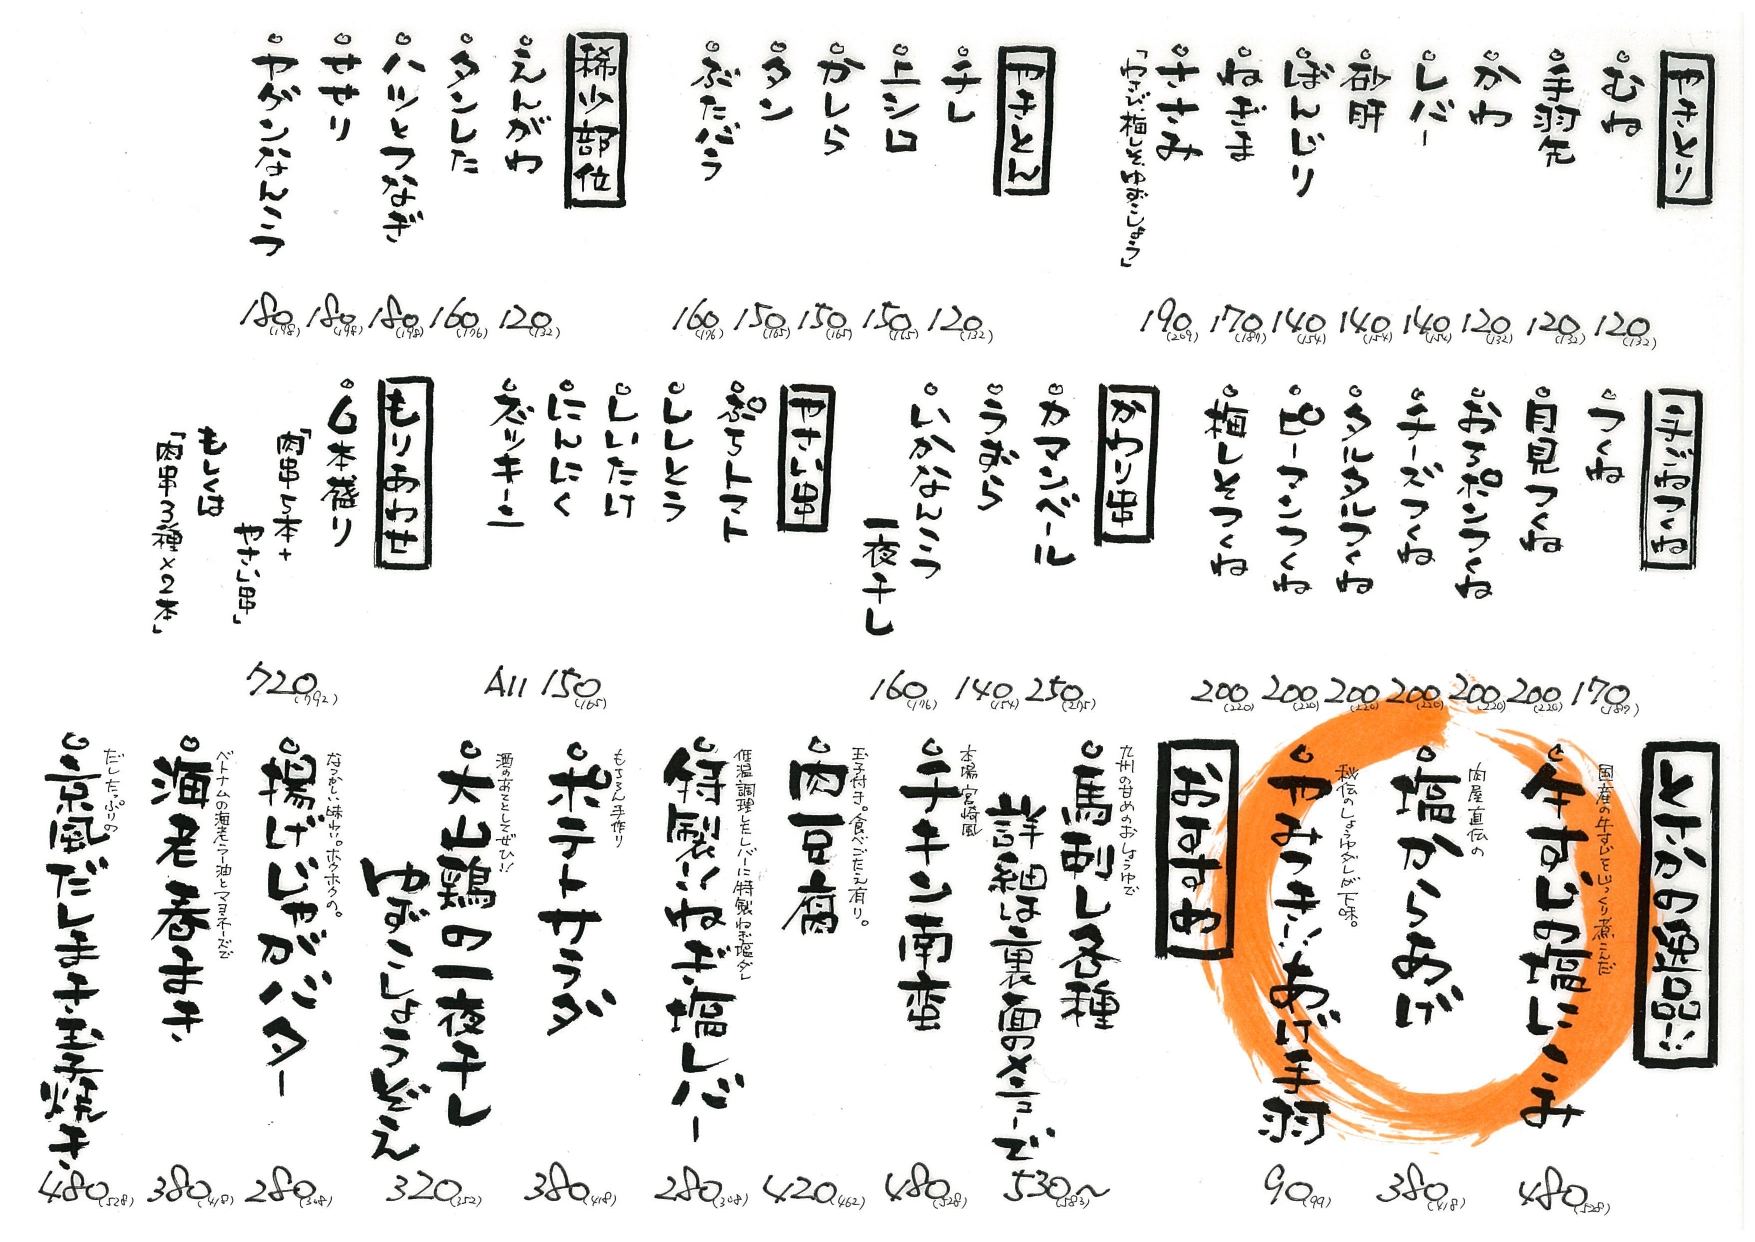 やきとり
むね 120(132)
手羽先 120(132)
かわ 120(132)
レバー 140(154)
砂肝 140(154)
ぼんじり 140(154)
ねぎま 170(187)
ささみ 190(209)
「わさび、梅しそ、ゆずこしょう」
やきとん
チレ 120(132)
上シロ 150(165)
かしら 150(165)
タン 150(165)
ぶたバラ 160(176)
稀少部位
えんがわ 120(132)
タンした 160(176)
ハツとつなぎ 180(198)
せせり 180(198)
ヤゲンなんこつ 180(198)
手ごねつくね
つくね 170(187)
月見つくね 200(220)
おろポンつくね 200(220)
チーズつくね 200(220)
タルタルつくね 200(220)
ピーマンつくね 200(220)
梅しそつくね 200(220)
かわり串
カマンベール 250(275)
うずら 140(154)
いかなんこつ
一夜干し 160(176)
やさい串
ぷちトマト
ししとう
しいたけ
にんにく
ズッキーニ
All 150(165)
もりあわせ
6本盛り 720(792)
「肉串5本+
やさい串」
もしくは
「肉串3種×2本」
とさかの逸品!!
国産の牛すじをじっくり煮こんだ
牛すじの塩にこみ 480(528)
肉屋直伝の
塩からあげ 380(418)
秘伝のしょうゆダレが下味。
やみつき!!あげ手羽 90(99)
おすすめ
九州の甘めのおしょうゆで
馬刺し各種
詳細は裏面のメニューで 530〜(583)
本場宮崎風
チキン南蛮 480(528)
玉子付き。食べごたえ有り。
肉豆腐 420(462)
低温調理したレバーに特製ねぎ塩ダレ
特製!!ねぎ塩レバー 280(308)
もちろん手作り
ポテトサラダ 380(418)
酒のあてとしてぜひ!!
大山鶏の一夜干し
ゆずこしょうぞえ 320(352)
なつかしい味わい。ホクホクの。
揚げじゃがバター 280(308)
ベトナムの海老ラー油とマヨネーズで
海老春まき 380(418)
だしたっぷりの
京風だしまき玉子焼き 480(528)